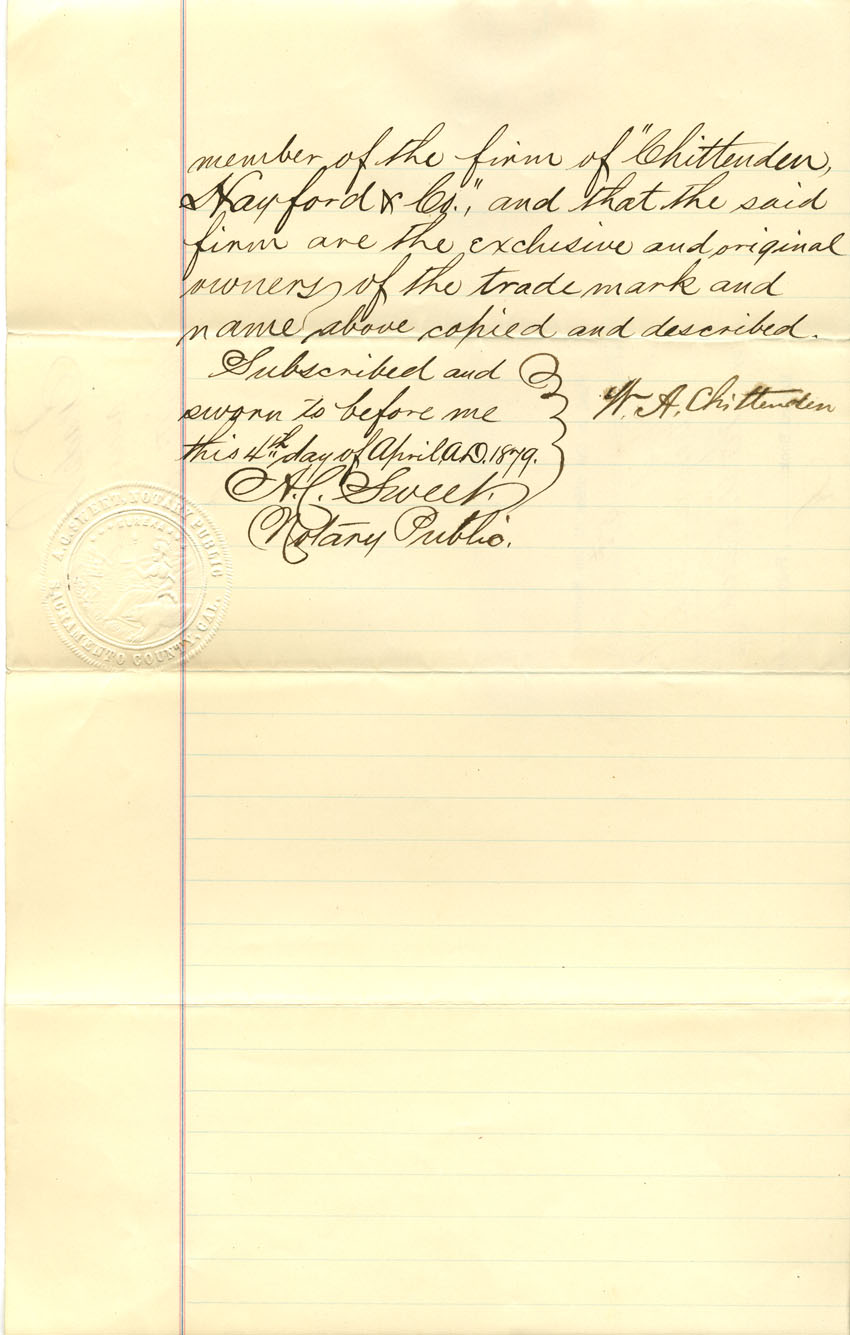 member of the firm of "Chittenden,
Hayford & Co.", and that the said
firm are the exclusive and original
owners of the trade mark and
name above copied and described.
Subscribed and
sworn to before me
this 4th day of April, A.D. 1879.
W. A. Chittenden
A. C. Sweet.
Notary Public.
A. C. SWEET, NOTARY PUBLIC
EUREKA
SACRAMENTO COUNTY, CAL.